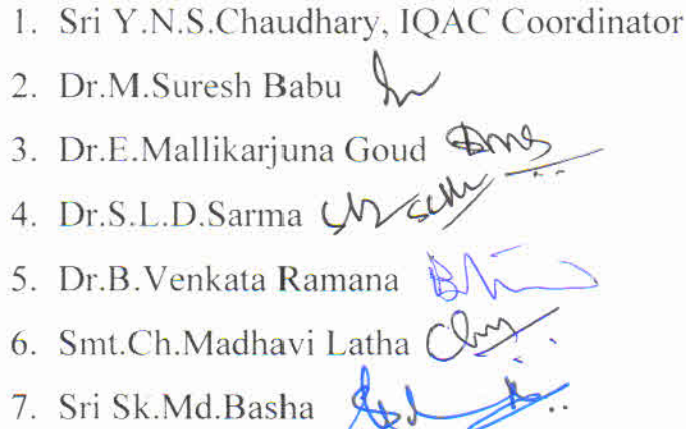 1. Sri Y.N.S.Chaudhary, IQAC Coordinator
2. Dr.M.Suresh Babu
3. Dr.E.Mallikarjuna Goud
4. Dr.S.L.D.Sarma
5. Dr.B.Venkata Ramana
6. Smt.Ch.Madhavi Latha
7. Sri Sk.Md.Basha